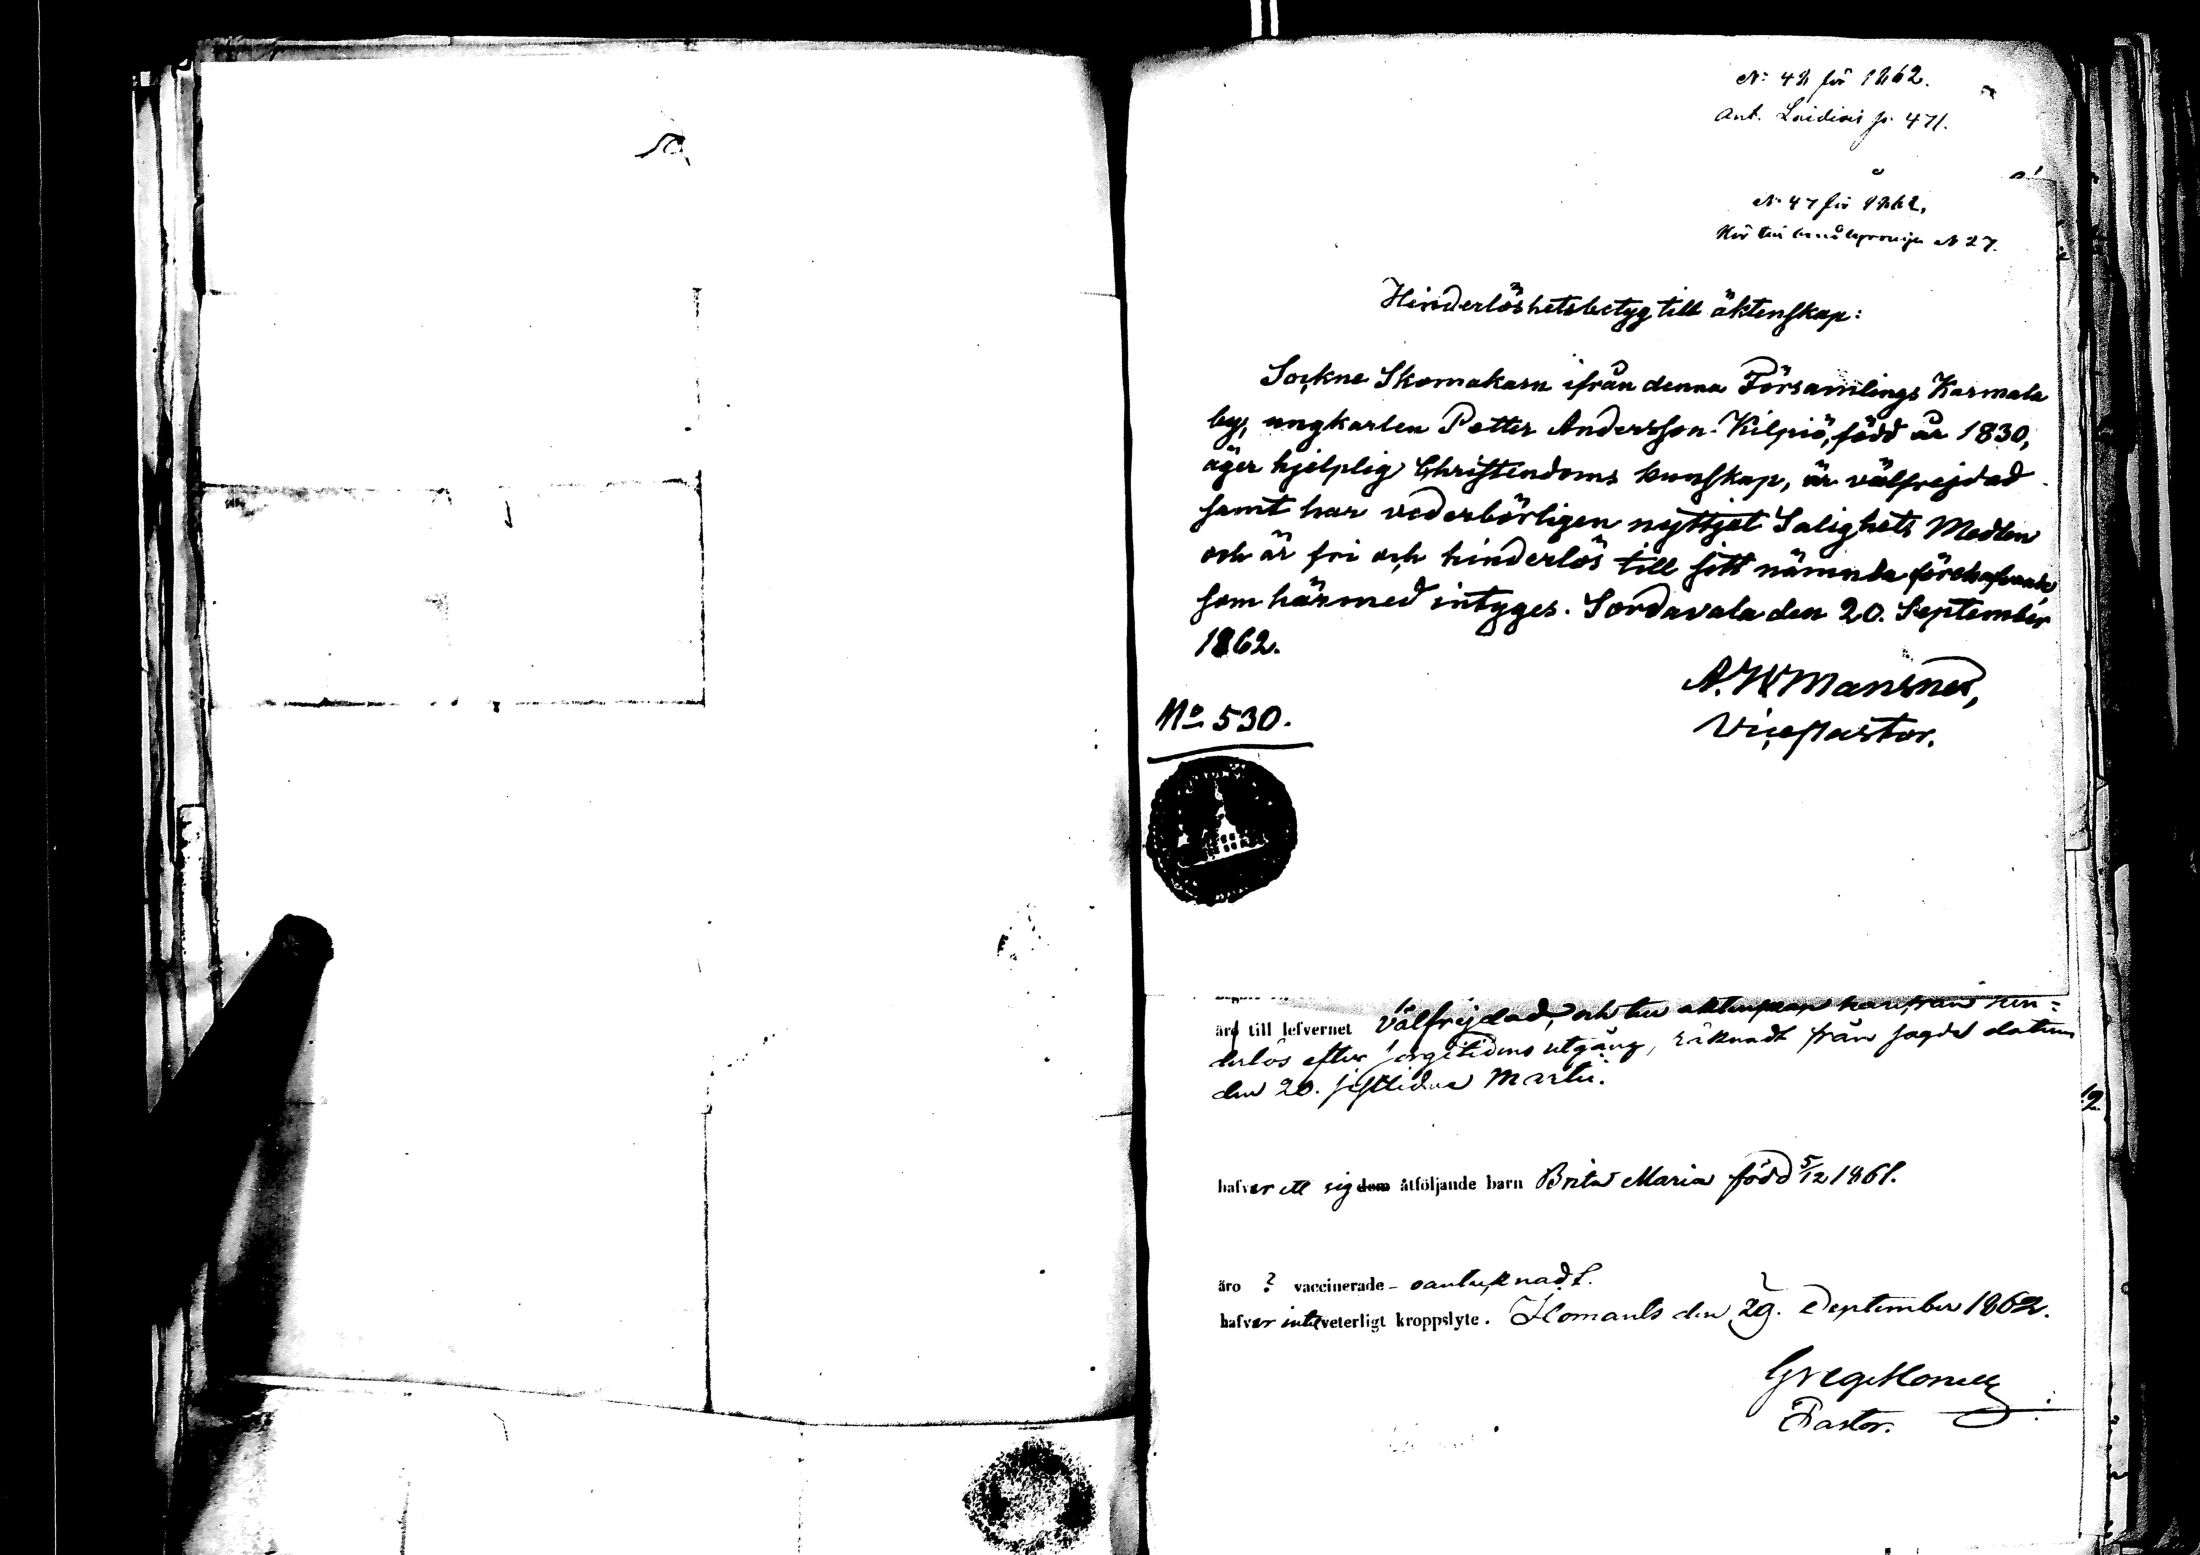 N: 48 för 1862.
Ant. p. 471.
N 47 för 1862.
N 27.
Hinderlöshetsbetyg till äktenskap:
Sockne Skomakarn ifrån denna Församlings Karmala
by, ungkarlen Petter Andersson Kilpiö, född år 1830,
äger hjelplig Christendoms kunskap, är välfrejdad
samt har vederbörligen nyttjat Salighets Medlen
och är fri och hinderlös till sitt nämnda förehafvande
som härmed intyges. Sordavala den 20. September
1862.
A. W Mansner,
Vicepastor.
No 530.
äro till lefvernet Välfrejdad, och till äktenskap härifrån hin=
derlös efter sorgetidens utgång, räknadt från sagde datum
den 20. sistlidne Martii.
hafver ett sig dem åtföljande barn Brita Maria född 5/12 1861.
äro ? vaccinerade - oanteknadt.
hafver inte veterligt kroppslyte. Ilomants den 29. September 1862.
Pastor.